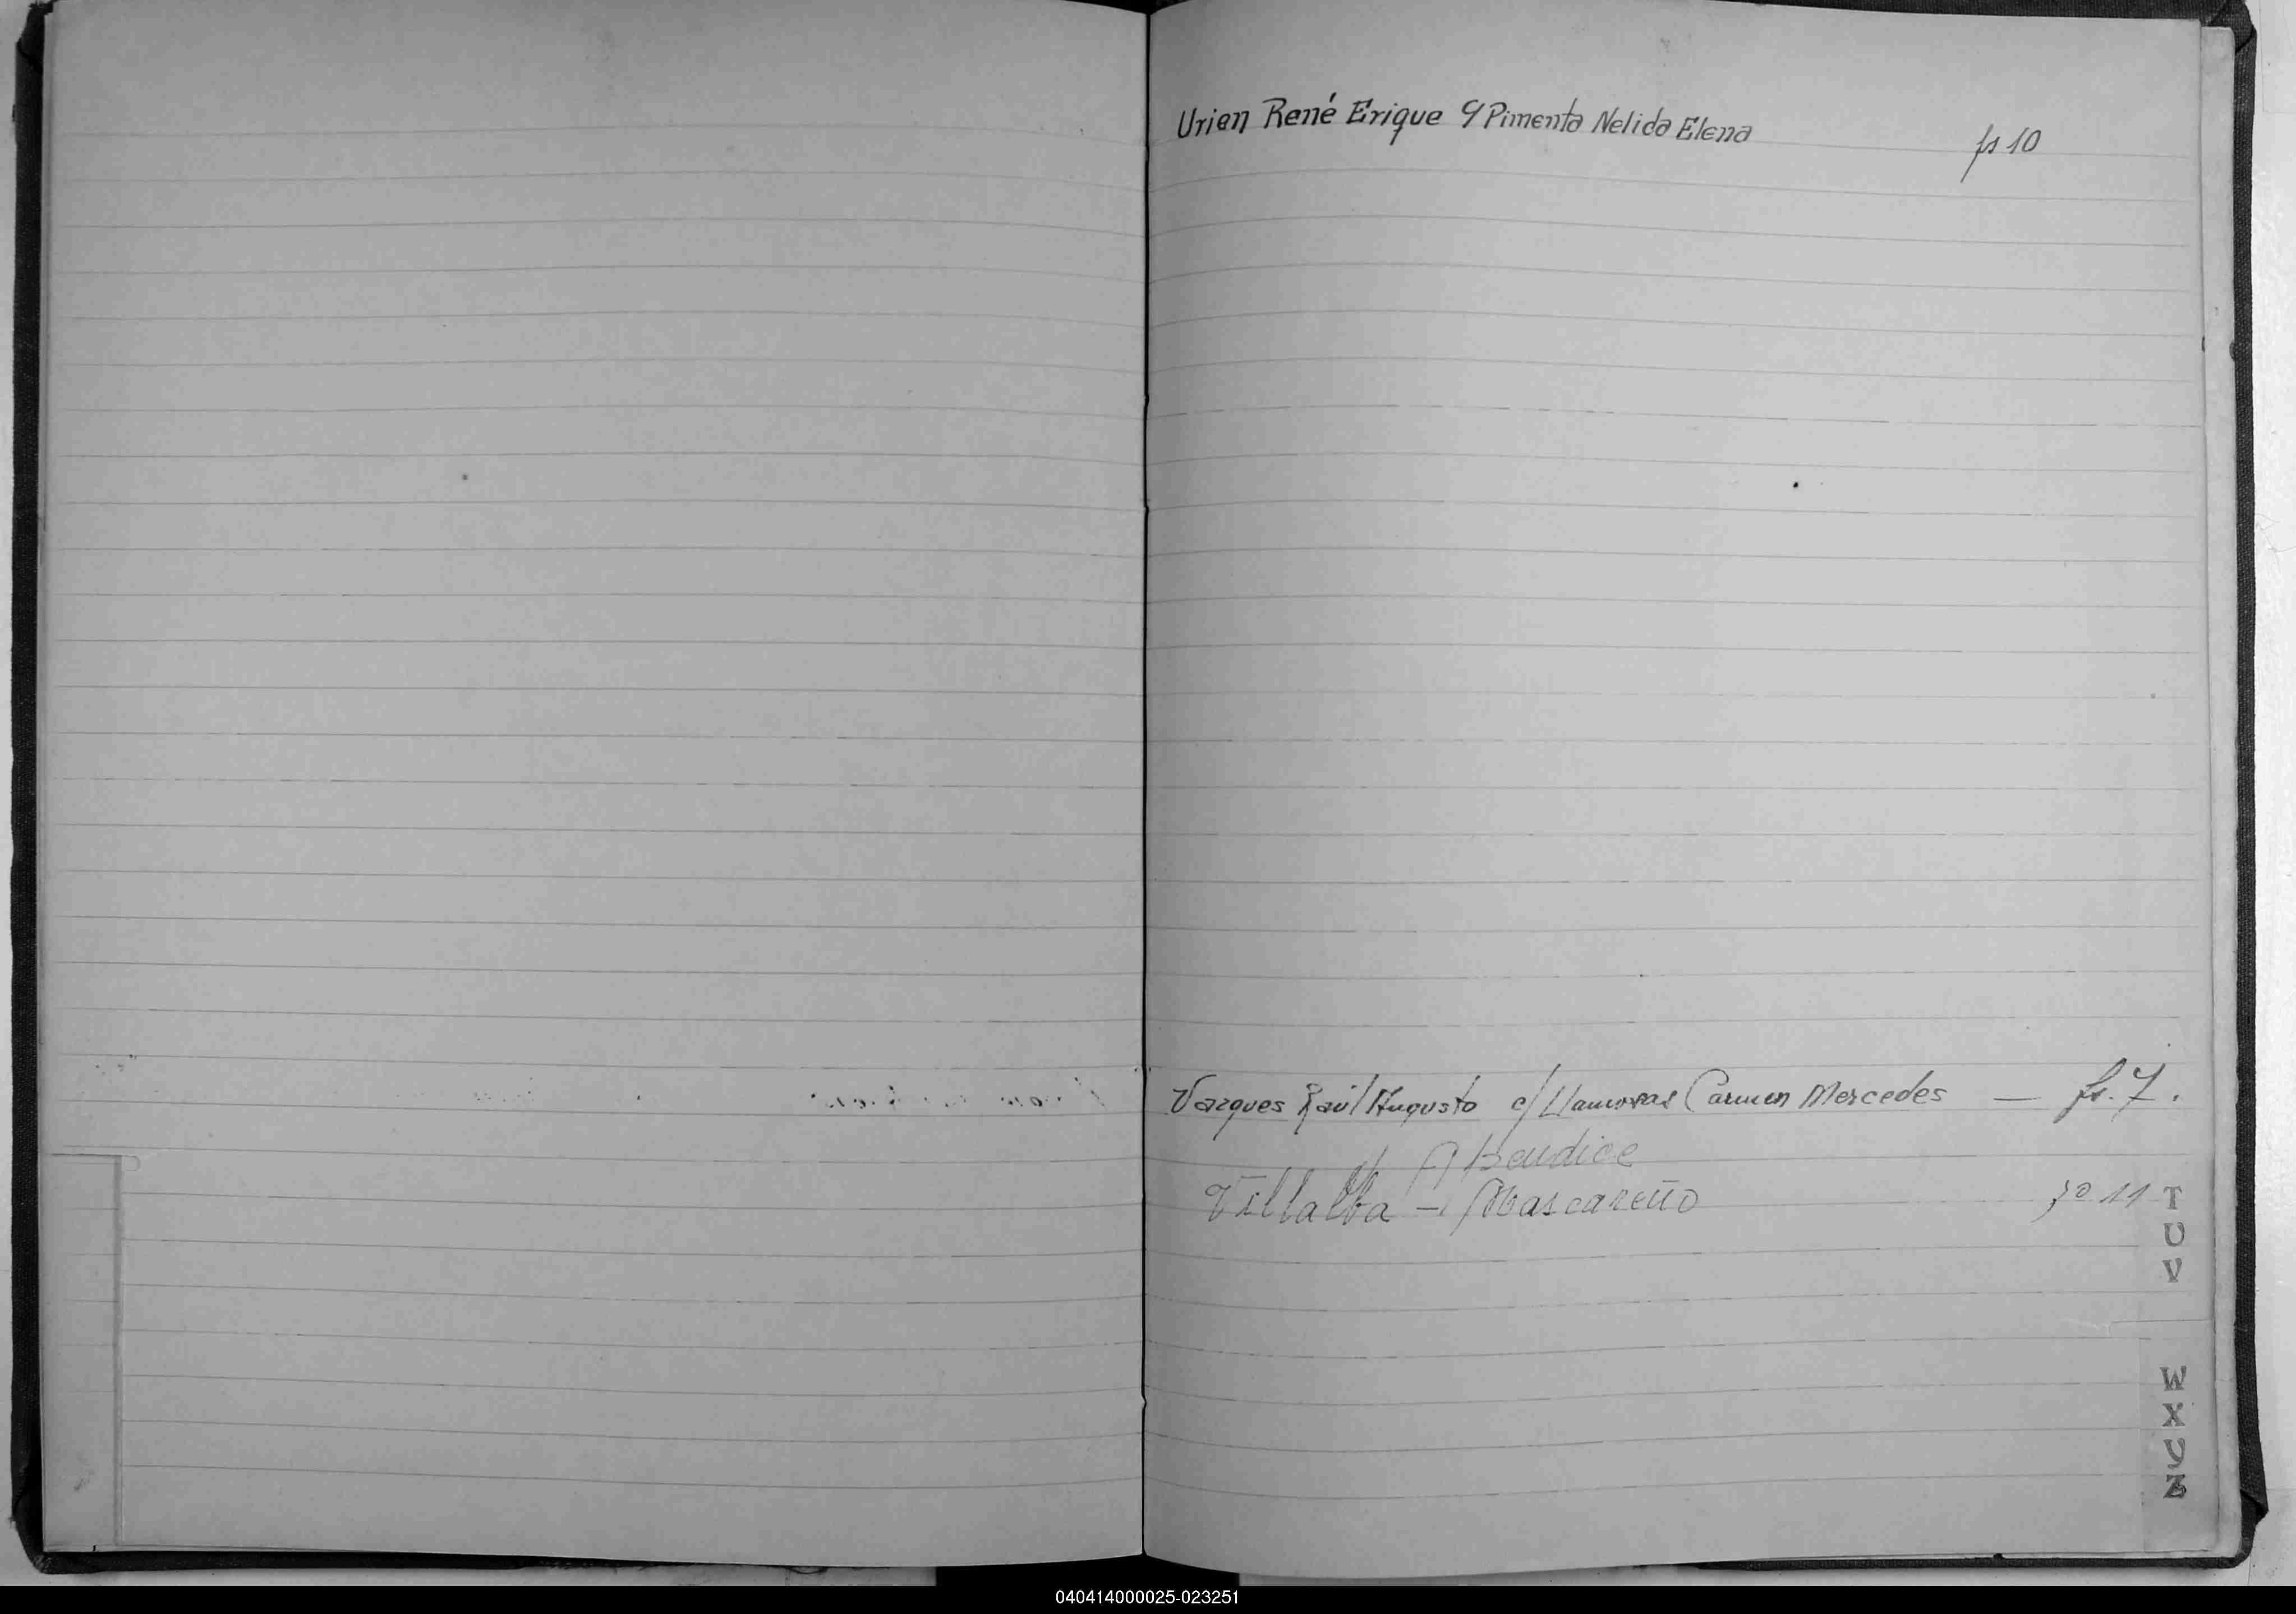 Urien René Erique c/ Pimenta Nelida Elena fs 10
Vazques Raúl Augusto c/ Llamosas Carmen Mercedes — fs. 7.
Apendice
Villalba — Mascareño fo 11
T
U
V
W
X
Y
Z
040414000025-023251